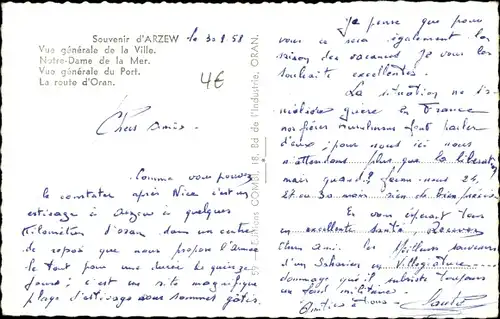 Souvenir d'ARZEW le 30.8.58
Vue générale de la Ville.
Notre-Dame de la Mer.
Vue générale du Port.
La route d'Oran.
4€
Chers Amis.
Comme vous pouvez
le constater après Nice c'est en
estivage à Arzew à quelques
kilomètres d'Oran dans un centre
de repos que nous propose l'Armée
le tout pour une durée de quinze
jours; c'est un site magnifique
plage d'estivage nous sommes gâtés.
59 Editions COMBI, 18, Bd de l'Industrie, ORAN.
Je pense que pour
vous ce sera également la
saison des vacances. Je vous les
souhaite excellentes.
La situation ne s'
améliore guère en France
nos frères musulmans font parler
d'eux; pour nous ici nous
n'attendons plus que la libération
mais quand? Ferons-nous 24,
27 ou 30 mois rien de bien précis.
En vous espérant tous
en excellente santé, Recevez
chers Amis les meilleurs souvenirs
d'un Saharien en Villégiature
dommage qu'il subsiste toujours
un fond militaire.
Amitiés à Tous.